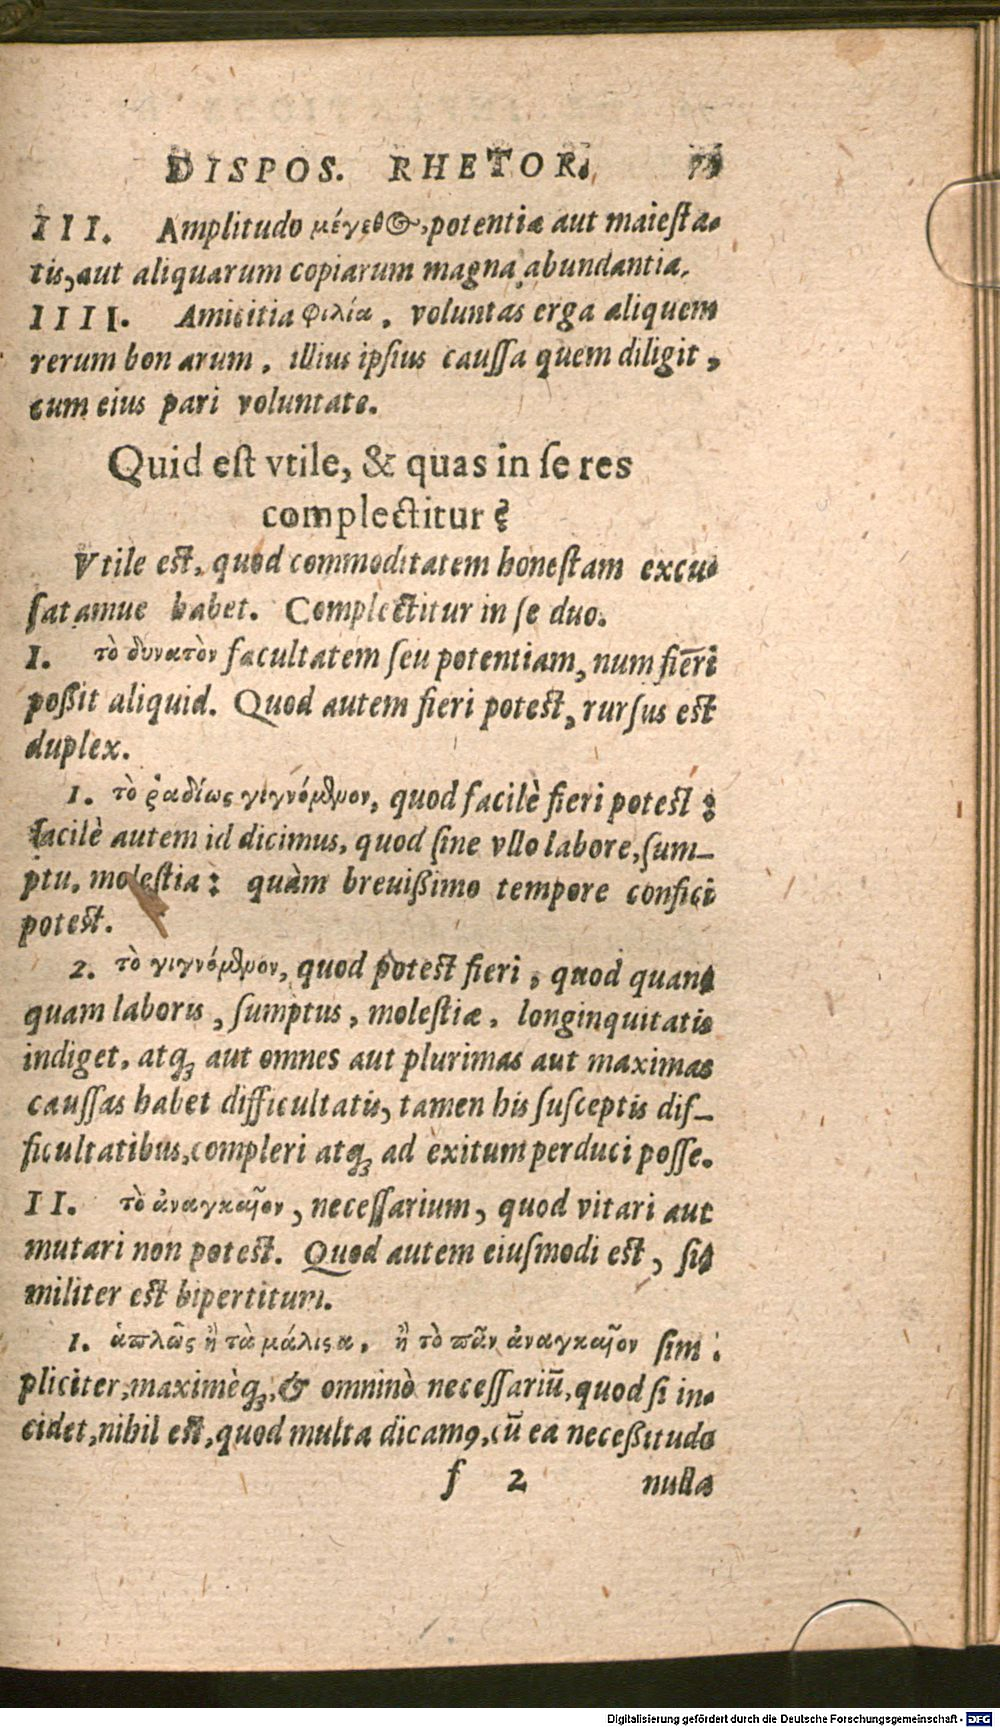 DISPOS. RHETOR.
III. Amplitudo μέγεθος, potentiæ aut maiesta-
tis, aut aliquarum copiarum magna abundantia.
IIII. Amicitia φιλία, voluntas erga aliquem
rerum bonarum, illius ipsius caussa quem diligit,
cum eius pari voluntate.
Quid est vtile, & quas in se res
complectitur?
Vtile est, quod commoditatem honestam excu-
satamue habet. Complectitur in se duo.
I. τὸ δυνατὸν facultatem seu potentiam, num fieri
poßit aliquid. Quod autem fieri potest, rursus est
duplex.
1. τὸ ῥαδίως γιγνόμενον, quod facilè fieri potest:
facilè autem id dicimus, quod sine vllo labore, sum-
ptu, molestia: quàm breuißimo tempore confici
potest.
2. τὸ γιγνόμενον, quod potest fieri, quod quan-
quam laboris, sumptus, molestiæ, longinquitatis
indiget, atq; aut omnes aut plurimas aut maximas
caussas habet difficultatis, tamen his susceptis dif-
ficultatibus, compleri atq; ad exitum perduci posse.
II. τὸ ἀναγκαῖον, necessarium, quod vitari aut
mutari non potest. Quod autem eiusmodi est, si-
militer est bipertitum.
1. ἁπλῶς ἢ τὰ μάλιστα, ἢ τὸ πᾶν ἀναγκαῖον sim-
pliciter, maximèq;, & omninò necessariū, quod si in-
cidet, nihil est, quod multa dicamꝰ, cū ea neceßitudo
f 2 nulla
Digitalisierung gefördert durch die Deutsche Forschungsgemeinschaft - DFG